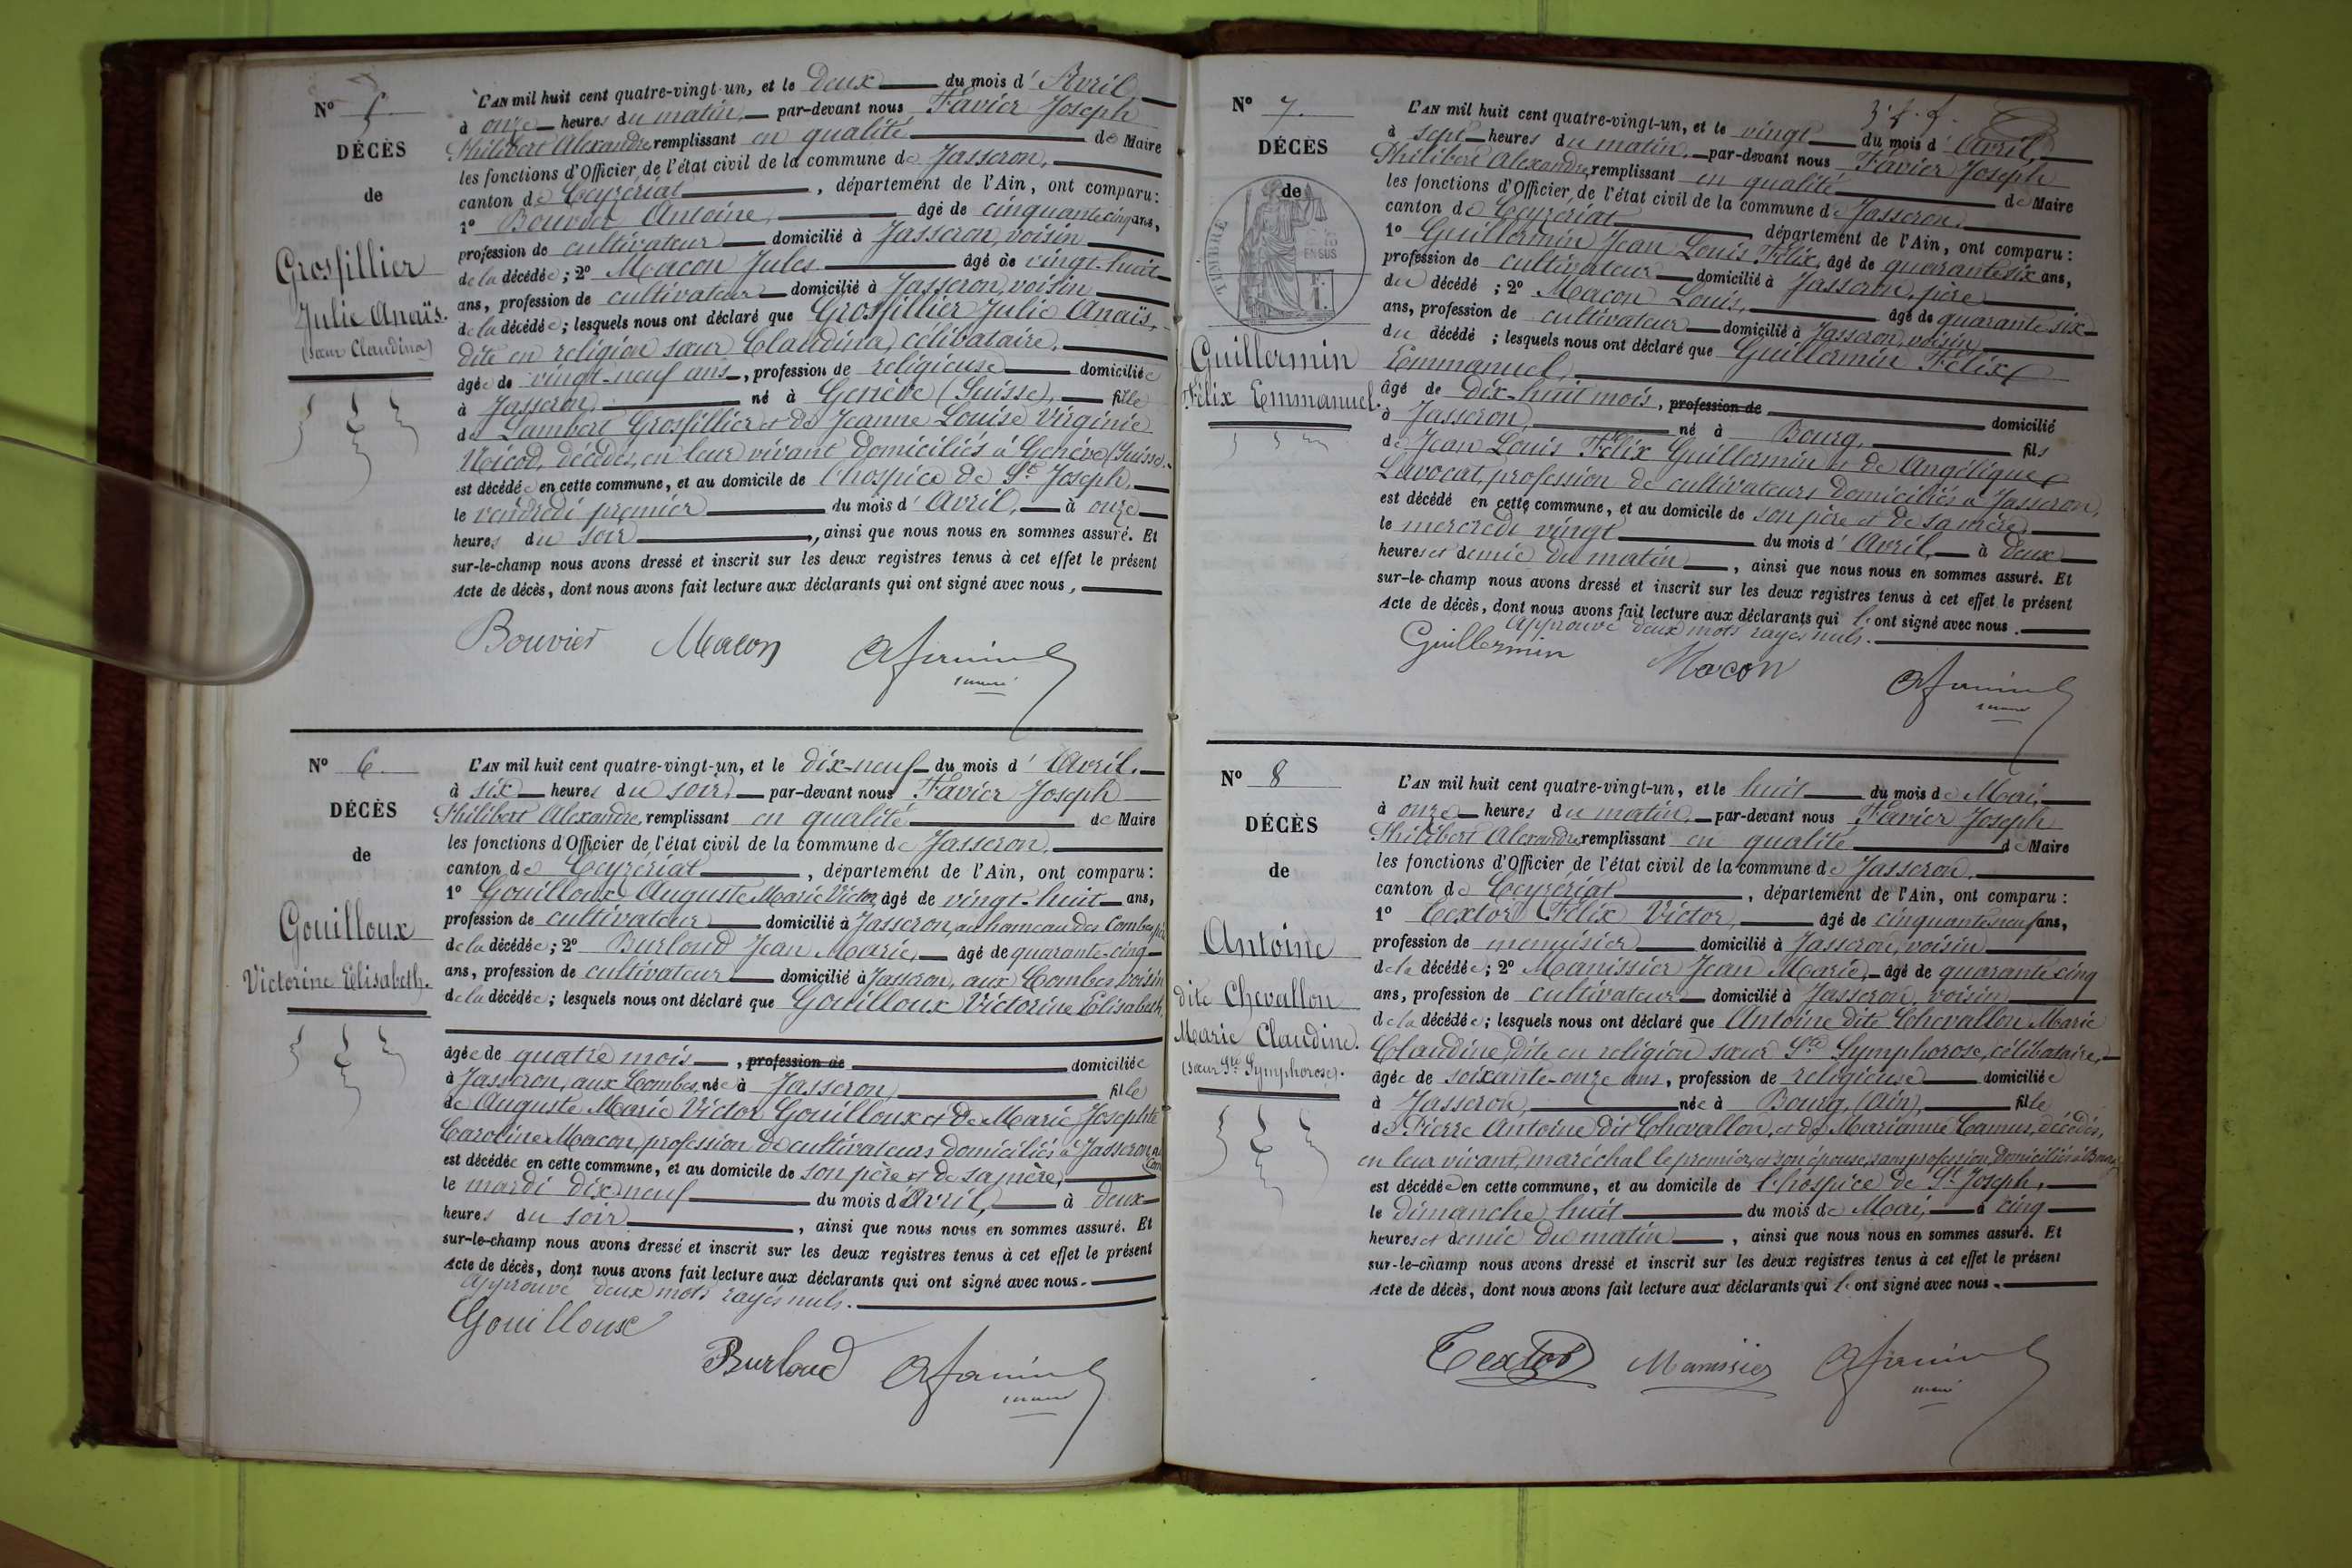 N° 5
DÉCÈS
de
Grosfillier
Julie Anaïs.
(sœur Claudina)
L'AN mil huit cent quatre-vingt-un, et le deux du mois d'Avril
à onze heures du matin, par-devant nous Favier Joseph
Philibert Alexandre, remplissant en qualité de Maire
les fonctions d'Officier de l'état civil de la commune de Jasseron,
canton de Ceyzériat, département de l'Ain, ont comparu:
1° Bouvier Antoine, âgé de cinquante cinq ans,
profession de cultivateur domicilié à Jasseron, voisin
de la décédée; 2° Macon Jules âgé de vingt-huit
ans, profession de cultivateur domicilié à Jasseron, voisin
de la décédée; lesquels nous ont déclaré que Grosfillier Julie Anaïs,
dite en religion sœur Claudina, célibataire,
âgée de vingt-neuf ans, profession de religieuse domiciliée
à Jasseron, né à Genève (Suisse), fille
de Lambert Grosfillier et de Jeanne Louise Virginie
Noicod, décédés, en leur vivant domiciliés à Genève (Suisse).
est décédée en cette commune, et au domicile de l'hospice de St. Joseph,
le vendredi premier du mois d'Avril, à onze
heures du soir, ainsi que nous nous en sommes assuré. Et
sur-le-champ nous avons dressé et inscrit sur les deux registres tenus à cet effet le présent
Acte de décès, dont nous avons fait lecture aux déclarants qui ont signé avec nous,
Bouvier Macon
N° 6
DÉCÈS
de
Gouilloux
Victorine Elisabeth.
L'AN mil huit cent quatre-vingt-un, et le dix-neuf du mois d'Avril.
à six heures du soir, par-devant nous Favier Joseph
Philibert Alexandre, remplissant en qualité de Maire
les fonctions d'Officier de l'état civil de la commune de Jasseron,
canton de Ceyzériat, département de l'Ain, ont comparu:
1° Gouilloux Auguste Marie Victor, âgé de vingt-huit ans,
profession de cultivateur domicilié à Jasseron, au hameau des Combes, père
de la décédée; 2° Burloud Jean Marie, âgé de quarante-cinq
ans, profession de cultivateur domicilié à Jasseron, aux Combes, voisin
de la décédée; lesquels nous ont déclaré que Gouilloux Victorine Elisabeth,
âgée de quatre mois, profession de domiciliée
à Jasseron, aux Combes, née à Jasseron, fille
de Auguste Marie Victor Gouilloux et de Marie Josephte
Caroline Macon, profession de cultivateurs domiciliés à Jasseron,
est décédée en cette commune, et au domicile de son père et de sa mère,
le mardi dix-neuf du mois d'Avril, à deux
heures du soir, ainsi que nous nous en sommes assuré. Et
sur-le-champ nous avons dressé et inscrit sur les deux registres tenus à cet effet le présent
Acte de décès, dont nous avons fait lecture aux déclarants qui ont signé avec nous.
Approuvé deux mots rayés nuls.
Gouilloux
Burloud
N° 7.
DÉCÈS
de
TIMBRE
Guillermin
Félix Emmanuel.
L'AN mil huit cent quatre-vingt-un, et le vingt du mois d'Avril,
à sept heures du matin, par-devant nous Favier Joseph
Philibert Alexandre, remplissant en qualité de Maire
les fonctions d'Officier de l'état civil de la commune de Jasseron,
canton de Ceyzériat, département de l'Ain, ont comparu:
1° Guillermin Jean Louis Félix, âgé de quarante six ans,
profession de cultivateur domicilié à Jasseron, père
du décédé; 2° Macon Louis, âgé de quarante six
ans, profession de cultivateur domicilié à Jasseron, voisin
du décédé; lesquels nous ont déclaré que Guillermin Félix
Emmanuel,
âgé de dix-huit mois, profession de domicilié
à Jasseron, né à Bourg, fils
de Jean Louis Félix Guillermin et de Angélique
Lavocat, profession de cultivateurs domiciliés à Jasseron,
est décédé en cette commune, et au domicile de son père et de sa mère,
le mercredi vingt du mois d'Avril, à deux
heures et demie du matin, ainsi que nous nous en sommes assuré. Et
sur-le-champ nous avons dressé et inscrit sur les deux registres tenus à cet effet le présent
Acte de décès, dont nous avons fait lecture aux déclarants qui l'ont signé avec nous.
Approuvé deux mots rayés nuls.
Guillermin
Macon
N° 8
DÉCÈS
de
Antoine
dite Chevallon
Marie Claudine.
(sœur Ste Symphorose).
L'AN mil huit cent quatre-vingt-un, et le huit du mois de Mai,
à onze heures du matin, par-devant nous Favier Joseph
Philibert Alexandre, remplissant en qualité de Maire
les fonctions d'Officier de l'état civil de la commune de Jasseron,
canton de Ceyzériat, département de l'Ain, ont comparu:
1° Textor Félix Victor, âgé de cinquante neuf ans,
profession de menuisier domicilié à Jasseron, voisin
de la décédée; 2° Manissier Jean Marie, âgé de quarante cinq
ans, profession de cultivateur domicilié à Jasseron, voisin
de la décédée; lesquels nous ont déclaré que Antoine dite Chevallon Marie
Claudine, dite en religion sœur Ste Symphorose, célibataire,
âgée de soixante-onze ans, profession de religieuse domiciliée
à Jasseron, née à Bourg, (Ain), fille
de Pierre Antoine dit Chevallon, et de Marianne Camus, décédés,
en leur vivant, maréchal le premier, et son épouse, sans profession, domiciliés à Bourg,
est décédée en cette commune, et au domicile de l'hospice de St Joseph,
le dimanche huit du mois de Mai, à cinq
heures et demie du matin, ainsi que nous nous en sommes assuré. Et
sur-le-champ nous avons dressé et inscrit sur les deux registres tenus à cet effet le présent
Acte de décès, dont nous avons fait lecture aux déclarants qui l'ont signé avec nous.
Textor Manissier